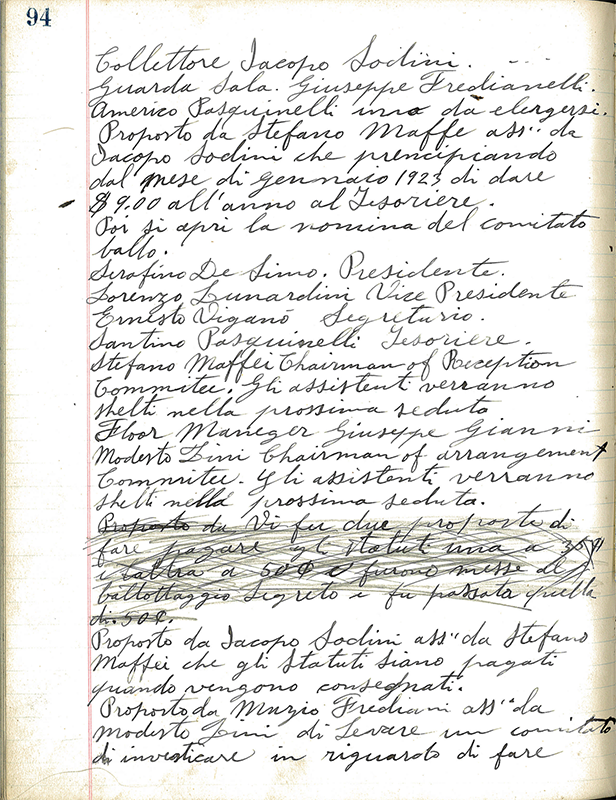 94
Collettore Iacopo Sodini.
Guarda Sala. Giuseppe Fredianelli.
Americo Pasquinelli uno da elergersi.
Proposto da Stefano Maffe ass" da
Iacopo Sodini che prencipiando
dal mese di Gennaio 1923 di dare
$9.00 all'anno al Tesoriere.
Poi si apri la nomina del comitato
ballo.
Serafino De Simo. Presidente.
Lorenzo Lunardini Vice Presidente
Ernesto Viganò Segretario.
Santino Pasquinelli Tesoriere.
Stefano Maffei Chairman of Reception
Commitee. Gli assistenti verranno
shelti nella prossima seduta
Floor Maneger Giuseppe Gianni
Modesto Lini Chairman of arrangement
Commitee. Gli assistenti verranno
shelti nella prossima seduta.
Proposto da Vi fu due proposte di
fare pagare gli statuti una a 35¢
e l'altra a 50¢ e furono messe al
ballottaggio segreto e fu passata quella
di 50¢.
Proposto da Iacopo Sodini ass" da Stefano
Maffei che gli Statuti siano pagati
quando vengono consegnati.
Proposto da Muzio Frediani ass" da
Modesto Lini di Levare un comitato
di investicare in riguardo di fare